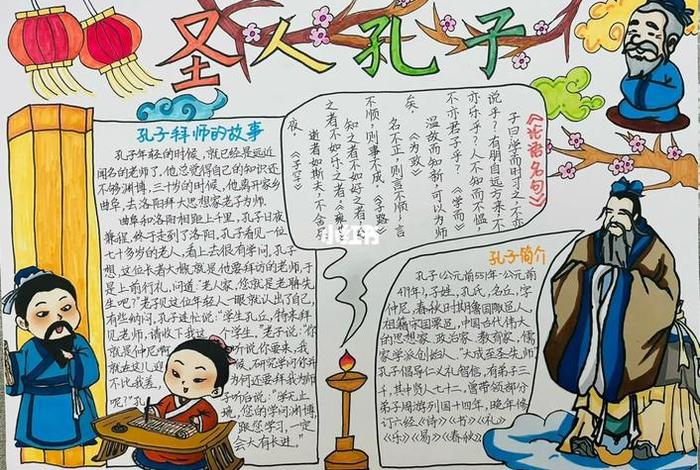 圣人孔子
孔子拜师的故事
孔子年轻的时候，就已经是远近
闻名的老师了，他总觉得自己的知识还
不够渊博，三十岁的时候，他离开家乡
曲阜，去洛阳拜大思想家老子为师。
曲阜和洛阳相距上千里，孔子日夜
兼程，终于走到了洛阳。孔子看见一位
七十多岁的老人，看上去很有学问，孔子
想，这位长者大概就是他要拜访的老师，于
是上前行礼，问道："老人家，您就是老聃先
生吧？"老子见这位年轻人一眼就认出了自己，
有些纳闷，孔子连忙说："学生孔丘，特来拜
见老师，请收下我这个学生。"老子说："你
就是仲尼啊，听说你要来，我
就在这儿迎候，研究学问你并
不比我差，为何还要拜我为师
呢？"孔 听后说："学无止
境，您的学问渊博，
跟您学习，一定
会大有长进。"
《论语名句》
子曰学而时习之不亦
说乎？有朋自远方来不
亦乐乎？人不知而不愠，
不亦君子乎？《学而》
温故而知新，可以为师
矣。《为政》
名不正，则言不顺，言
不顺，则事不成。《子路》
知之者不如好之者，好
之者不如乐之者。《雍
逝者如斯夫，不舍昼
夜。《子罕》
小红书
孔子简介
孔子(公元前551年-公元前
479年)，子姓，孔氏，名丘，字
仲尼，春秋时期鲁国陬邑人，
祖籍宋国栗邑，中国古代伟大
的思想家、政治家、教育家，儒
家学派创始人、"大成至圣先师"
孔子倡导仁义礼智信，有弟子三
千，其中贤人七十二，曾带领部分
弟子周游列国十四年，晚年修
订六经《诗》《书》《礼》
《乐》《易》《春秋》